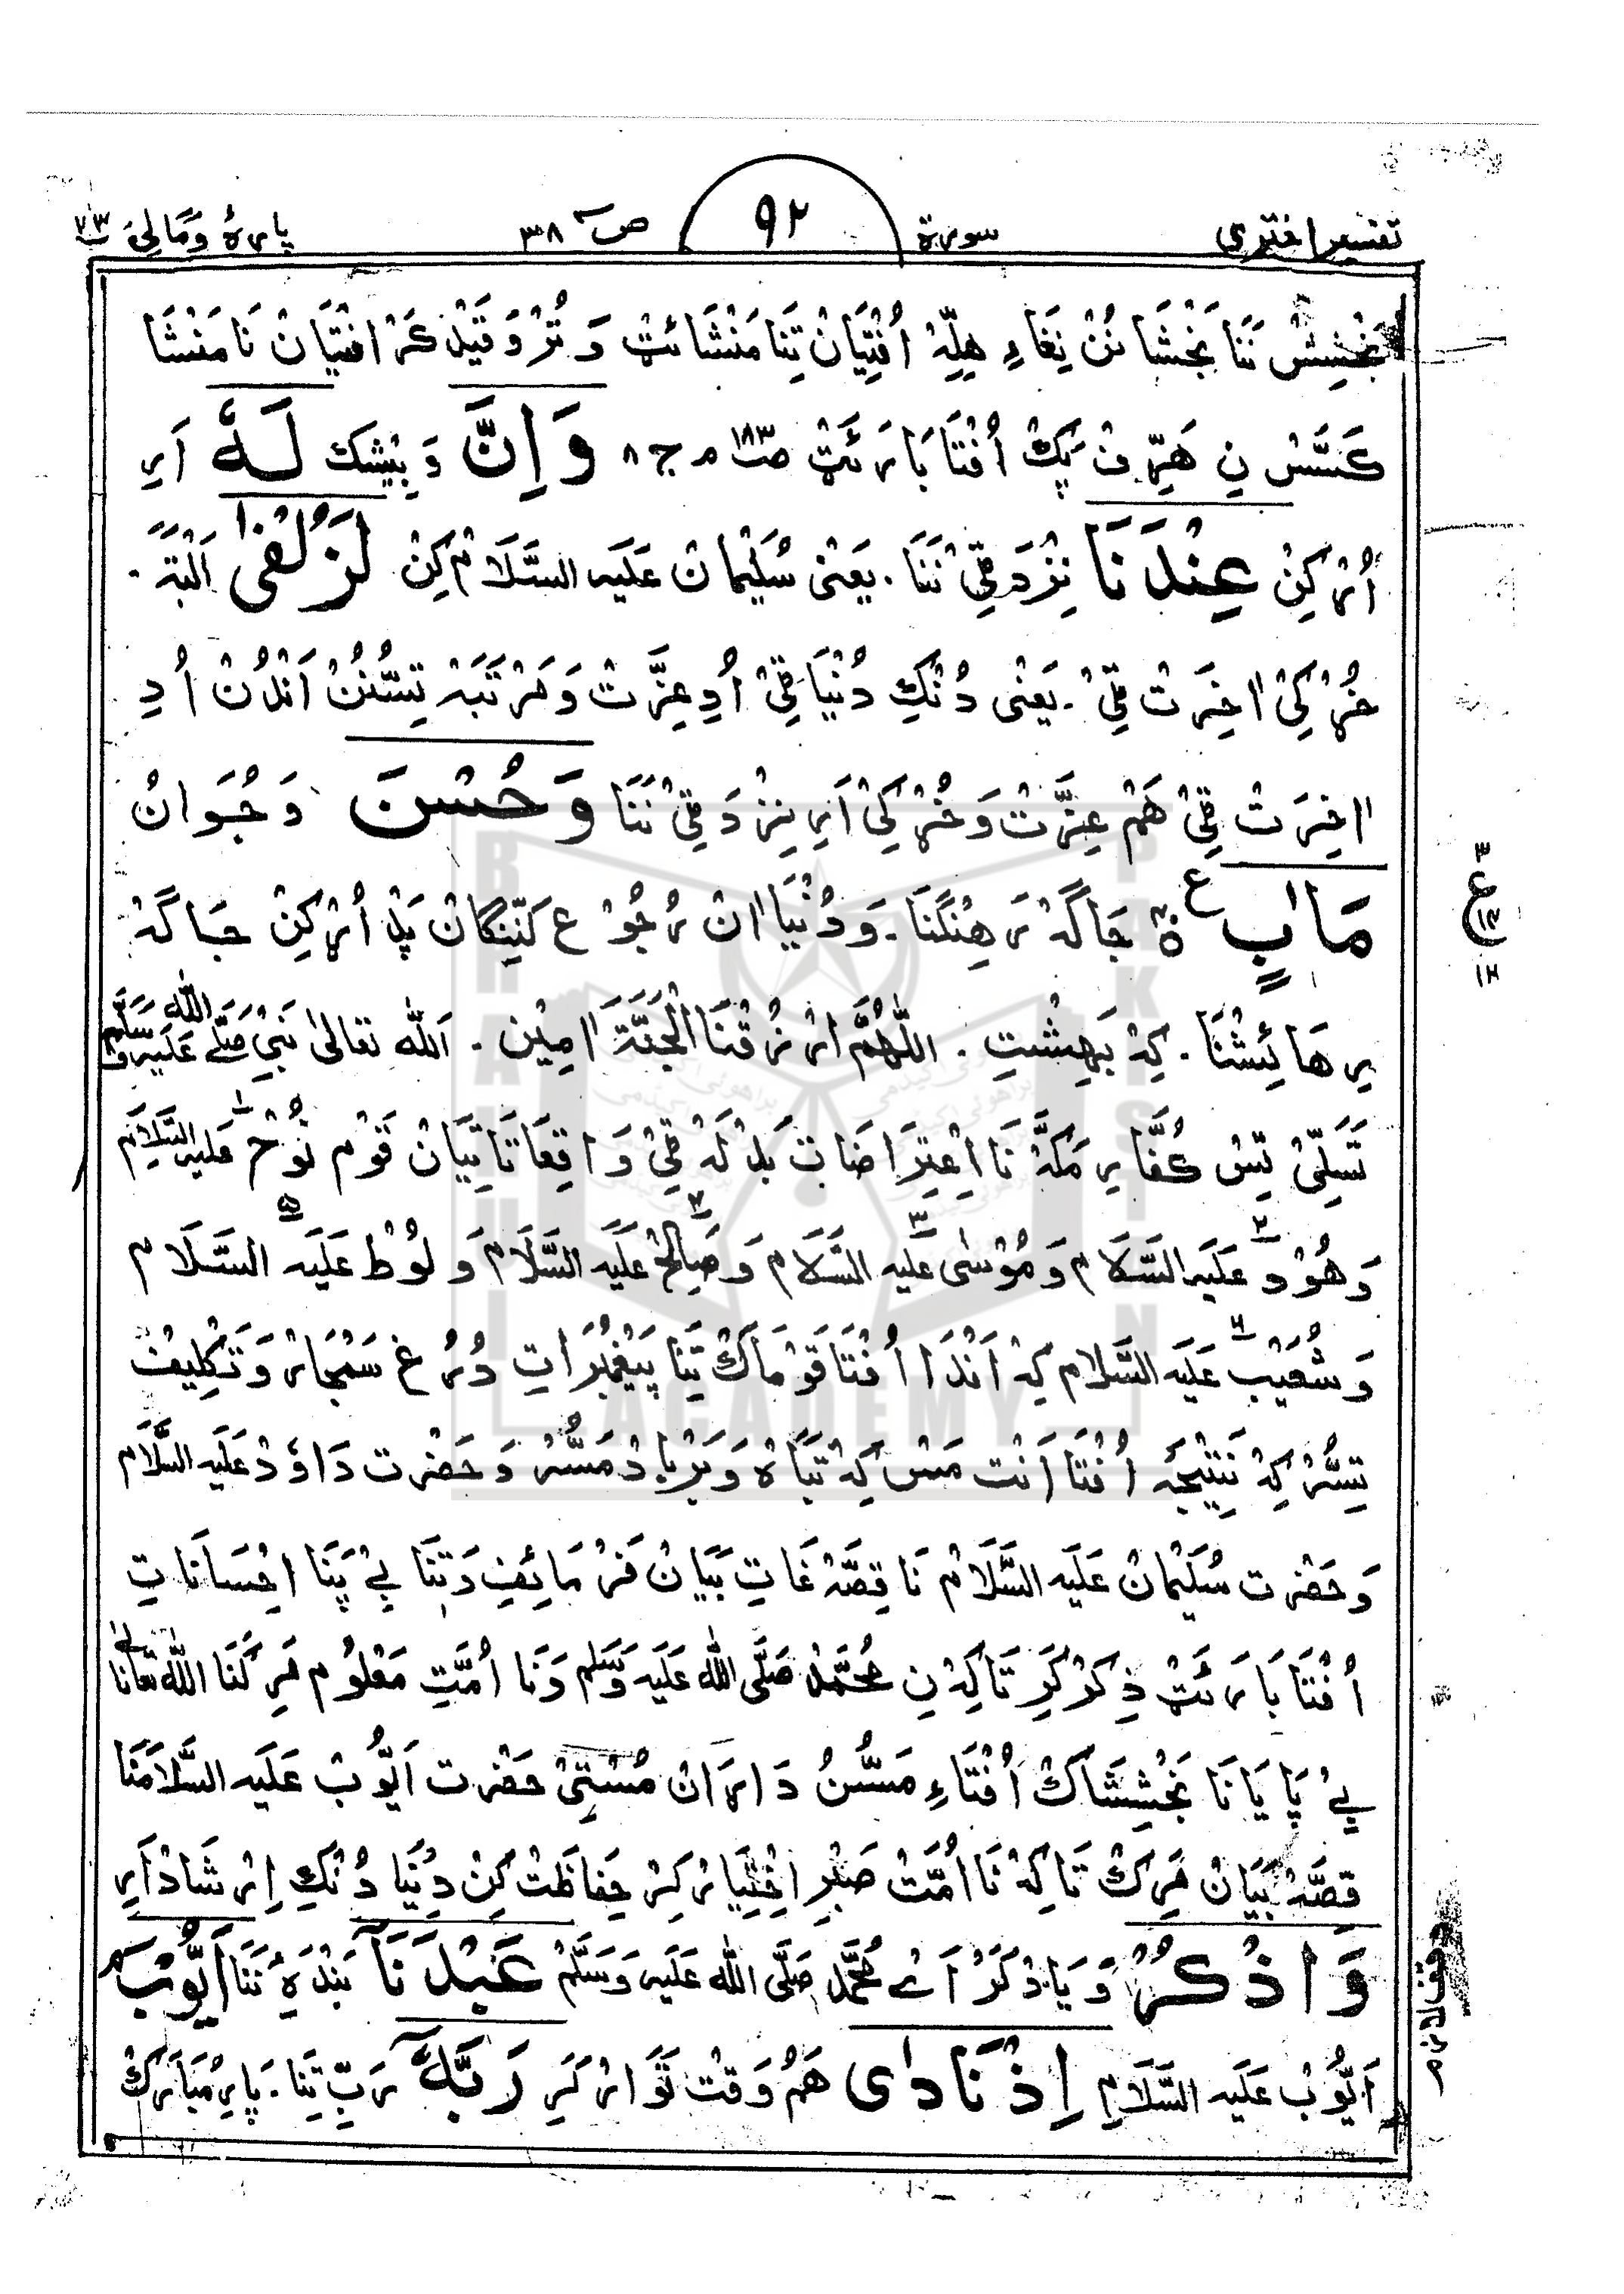 تفسیر اختری سورة ۹۲ صٓ ۳۸ پارهٔ وَمَالِیَ ۲۳
بَخْشِشْ نَنَا بَخْشَا نُنْ نِغَاءِ هِلِّهْ اُفْتِیَانْ تِنَا مَنْشَا ئتْ وَ تُرْ وَ قَیْد کَرْ افْتِیَانْ نَا مَنْشَا
کَسَّسْ نِ هَرِّفْ پَکْ اُفْتَا بَارَئَتْ صـ۱۸۳ ج ۸ وَاِنَّ وَبِیْشَک لَهٗ اَرِ
اُرْ کِنْ عِنْدَنَا نِزْدَ قِّیْ نَنَا . یَعْنِیْ سُلَیْمَانْ عَلَیه السَّلَامْ کِنْ لَزُلْفٰی اَلْبَتَّهْ .
خُرْ کِیْ اٰخِرَتْ قِّیْ . یَعْنِی دُنْکِ دُنْیَا قِّیْ اُدِ عِزَّتْ وَ مَرْتَبَهْ تِسُّنُنْ اَنْدُنْ اُدِ
اٰخِرَتْ قِّیْ هَمْ عِزَّتْ وَ خُرْ کِیْ اَرِ نِزْدَ قِّیْ نَنَا وَحُسْنَ وَ جُوَانُ
مَاٰبٍ ع جَاگَهْ رَهِنْگَنَا . وَ دُنْیَا اٰنْ رُجُوْع کَنِّنِگَانْ پَدْ اُرْ کِنْ جَاگَهْ
رِهَائِشْنَا . کِهْ بَهِشْتِ . اَللّٰهُمَّ ارْزُقْنَا الْجَنَّةَ اٰمِیْن . اَللّٰه تعالیٰ نَبِیْ صَلَّے اللّٰه عَلَیه وَسَلَّم
تَسَلِّیْ تِسْ کُفَّارِ مَکَّهْ نَا اِعْتِرَاضَاتْ بَدْلَهْ قِّیْ وَاقِعَاتَاتِیَانْ قَوْمِ نُوْحْ ۱ علیه السَّلَام
وَ هُوْدْ ۲ عَلَیه السَّلَام وَ مُوْسٰی ۳ عَلَیه السَّلَام وَ صَالِحْ ۴ عَلَیه السَّلَام وَ لُوْطْ ۵ عَلَیه السَّلَام
وَ شُعَیْبْ ۶ عَلَیه السَّلَام کِهْ اَنْدَا اُفْتَا قَوْمَاکْ تِنَا پَیْغَمْبَرَاتِ دُرُغ سَمْجَارْ وَ تَکْلِیْفْ
تِسُّرْ کِهْ نَتِیْجَه اُفْتَا اَنْت مَسْ کِهْ تَبَاهْ وَ بَرْبَادْ مَسُّرْ وَ حَضْرت دَاوٗدْ عَلَیه السَّلَام
وَ حَضْرت سُلَیْمَانْ عَلَیه السَّلَامْ نَا قِصَّهْ غَاتِ بَیَانْ فَرْمَائِفِ دَتِنَا بِےْ پَنَا اِحْسَانَاتِ
اُفْتَا بَارَئَتْ ذِکَرْ کَرِ تَاکِهْ نِ مُحَمَّد صَلَّی اللّٰه عَلَیه وَسَلَّم وَ نَا اُمَّتِ مَعْلُوْم مَرِ کَنَا اللّٰه تعالیٰ نا
بےْ پَایَانَا بَخْشِشَاکْ اُفْتَاءِ مَسُّنُ دَارَانْ مُسْتِیْ حَضْرت اَیُّوْبْ عَلَیه السَّلَامَنَا
قِصَّهْ بَیَانْ مَرِکْ تَاکِهْ نَا اُمَّتْ صَبْرِ اِخْتِیَارْ کِرْ حِفَاظَتْ کِنْ دِنَیَا دُنْکِ اِرْشَادْ اَرِ
وَاذْکُرْ وَ یَادْ کَرْ اَے مُحَمَّد صَلَّی اللّٰه عَلَیه وَسَلَّم عَبْدَنَا بَنْدَهِٔ نَنَا اَیُّوْبَ
اَیُّوْبْ عَلَیه السَّلَام اِذْ نَادٰی هَمُ وَقْت تَوَارْ کَرِ رَبَّهٗ رَبِّ تِنَا . پَارِ مُبَارَکْ
ع
۱۲
وقف لازم
BRAHUI ACADEMY PAKISTAN